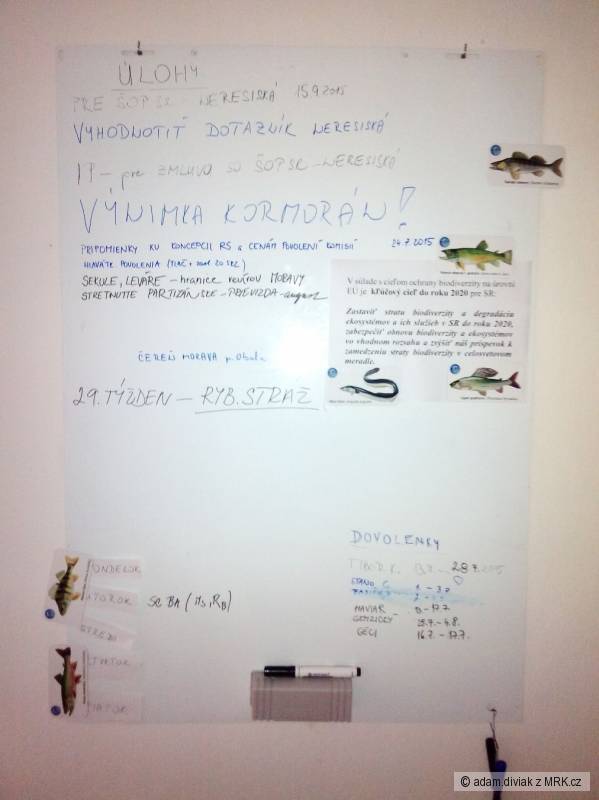 ÚLOHY
PRE ŠOP SR - NERESISKÁ 15.9.2015
VYHODNOTIŤ DOTAZNÍK NERESISKÁ
pre ZMLUVA SO ŠOP SR - NERESISKÁ
VÝNIMKA KORMORÁN!
PRIPOMIENKY KU KONCEPCII RS a CENÁM POVOLENÍ KOMISIÍ 24.7.2015
HLAVÁTE POVOLENIA
SEKULE, LEVÁRE - hranice revírov MORAVY
STRETNUTIE PARTIZÁNSKE - PRIEVIDZA - august
V súlade s cieľom ochrany biodiverzity na úrovni
EÚ je kľúčový cieľ do roku 2020 pre SR:
Zastaviť stratu biodiverzity a degradáciu
ekosystémov a ich služieb v SR do roku 2020,
zabezpečiť obnovu biodiverzity a ekosystémov
vo vhodnom rozsahu a zvýšiť náš príspevok k
zamedzeniu straty biodiverzity v celosvetovom
meradle.
ČEREŇ MORAVA p. Obala
29. TÝŽDEN - RYB. STRAŽ
DOVOLENKY
TIBOR K. 28.7.2015
STANO C.
HAVIAR
GEMZICKÝ 4.8.
GÉCI 16.7. - 17.7.
PONDELOK
UTOROK
STREDA
ŠTVRTOK
PIATOK
© adam.diviak z MRK.cz